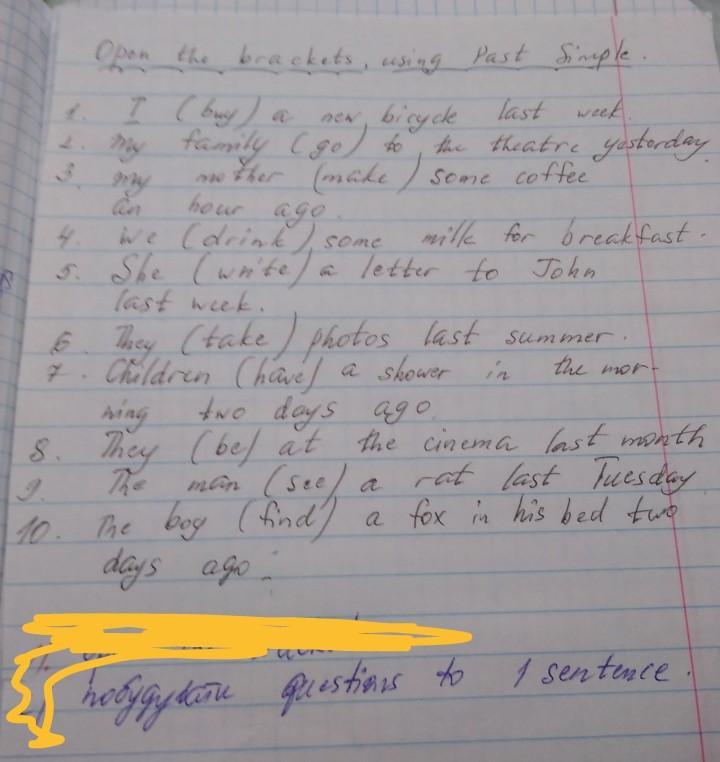 Open the brackets, using Past Simple.
1. I (buy) a new bicycle last week.
2. My family (go) to the theatre yesterday.
3. My mother (make) some coffee
an hour ago.
4. We (drink) some milk for breakfast.
5. She (write) a letter to John
last week.
6. They (take) photos last summer.
7. Children (have) a shower in the mor-
ning two days ago.
8. They (be) at the cinema last month
9. The man (see) a rat last Tuesday
10. The boy (find) a fox in his bed two
days ago.
1.
побудувати questions to 1 sentence.